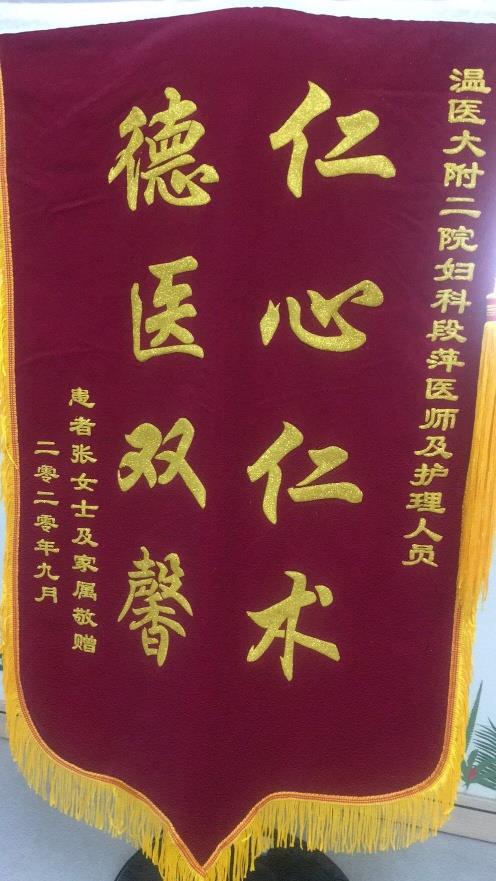 温医大附二院妇科段萍医师及护理人员
仁心仁术
德医双馨
患者张女士及家属敬赠
二零二零年九月